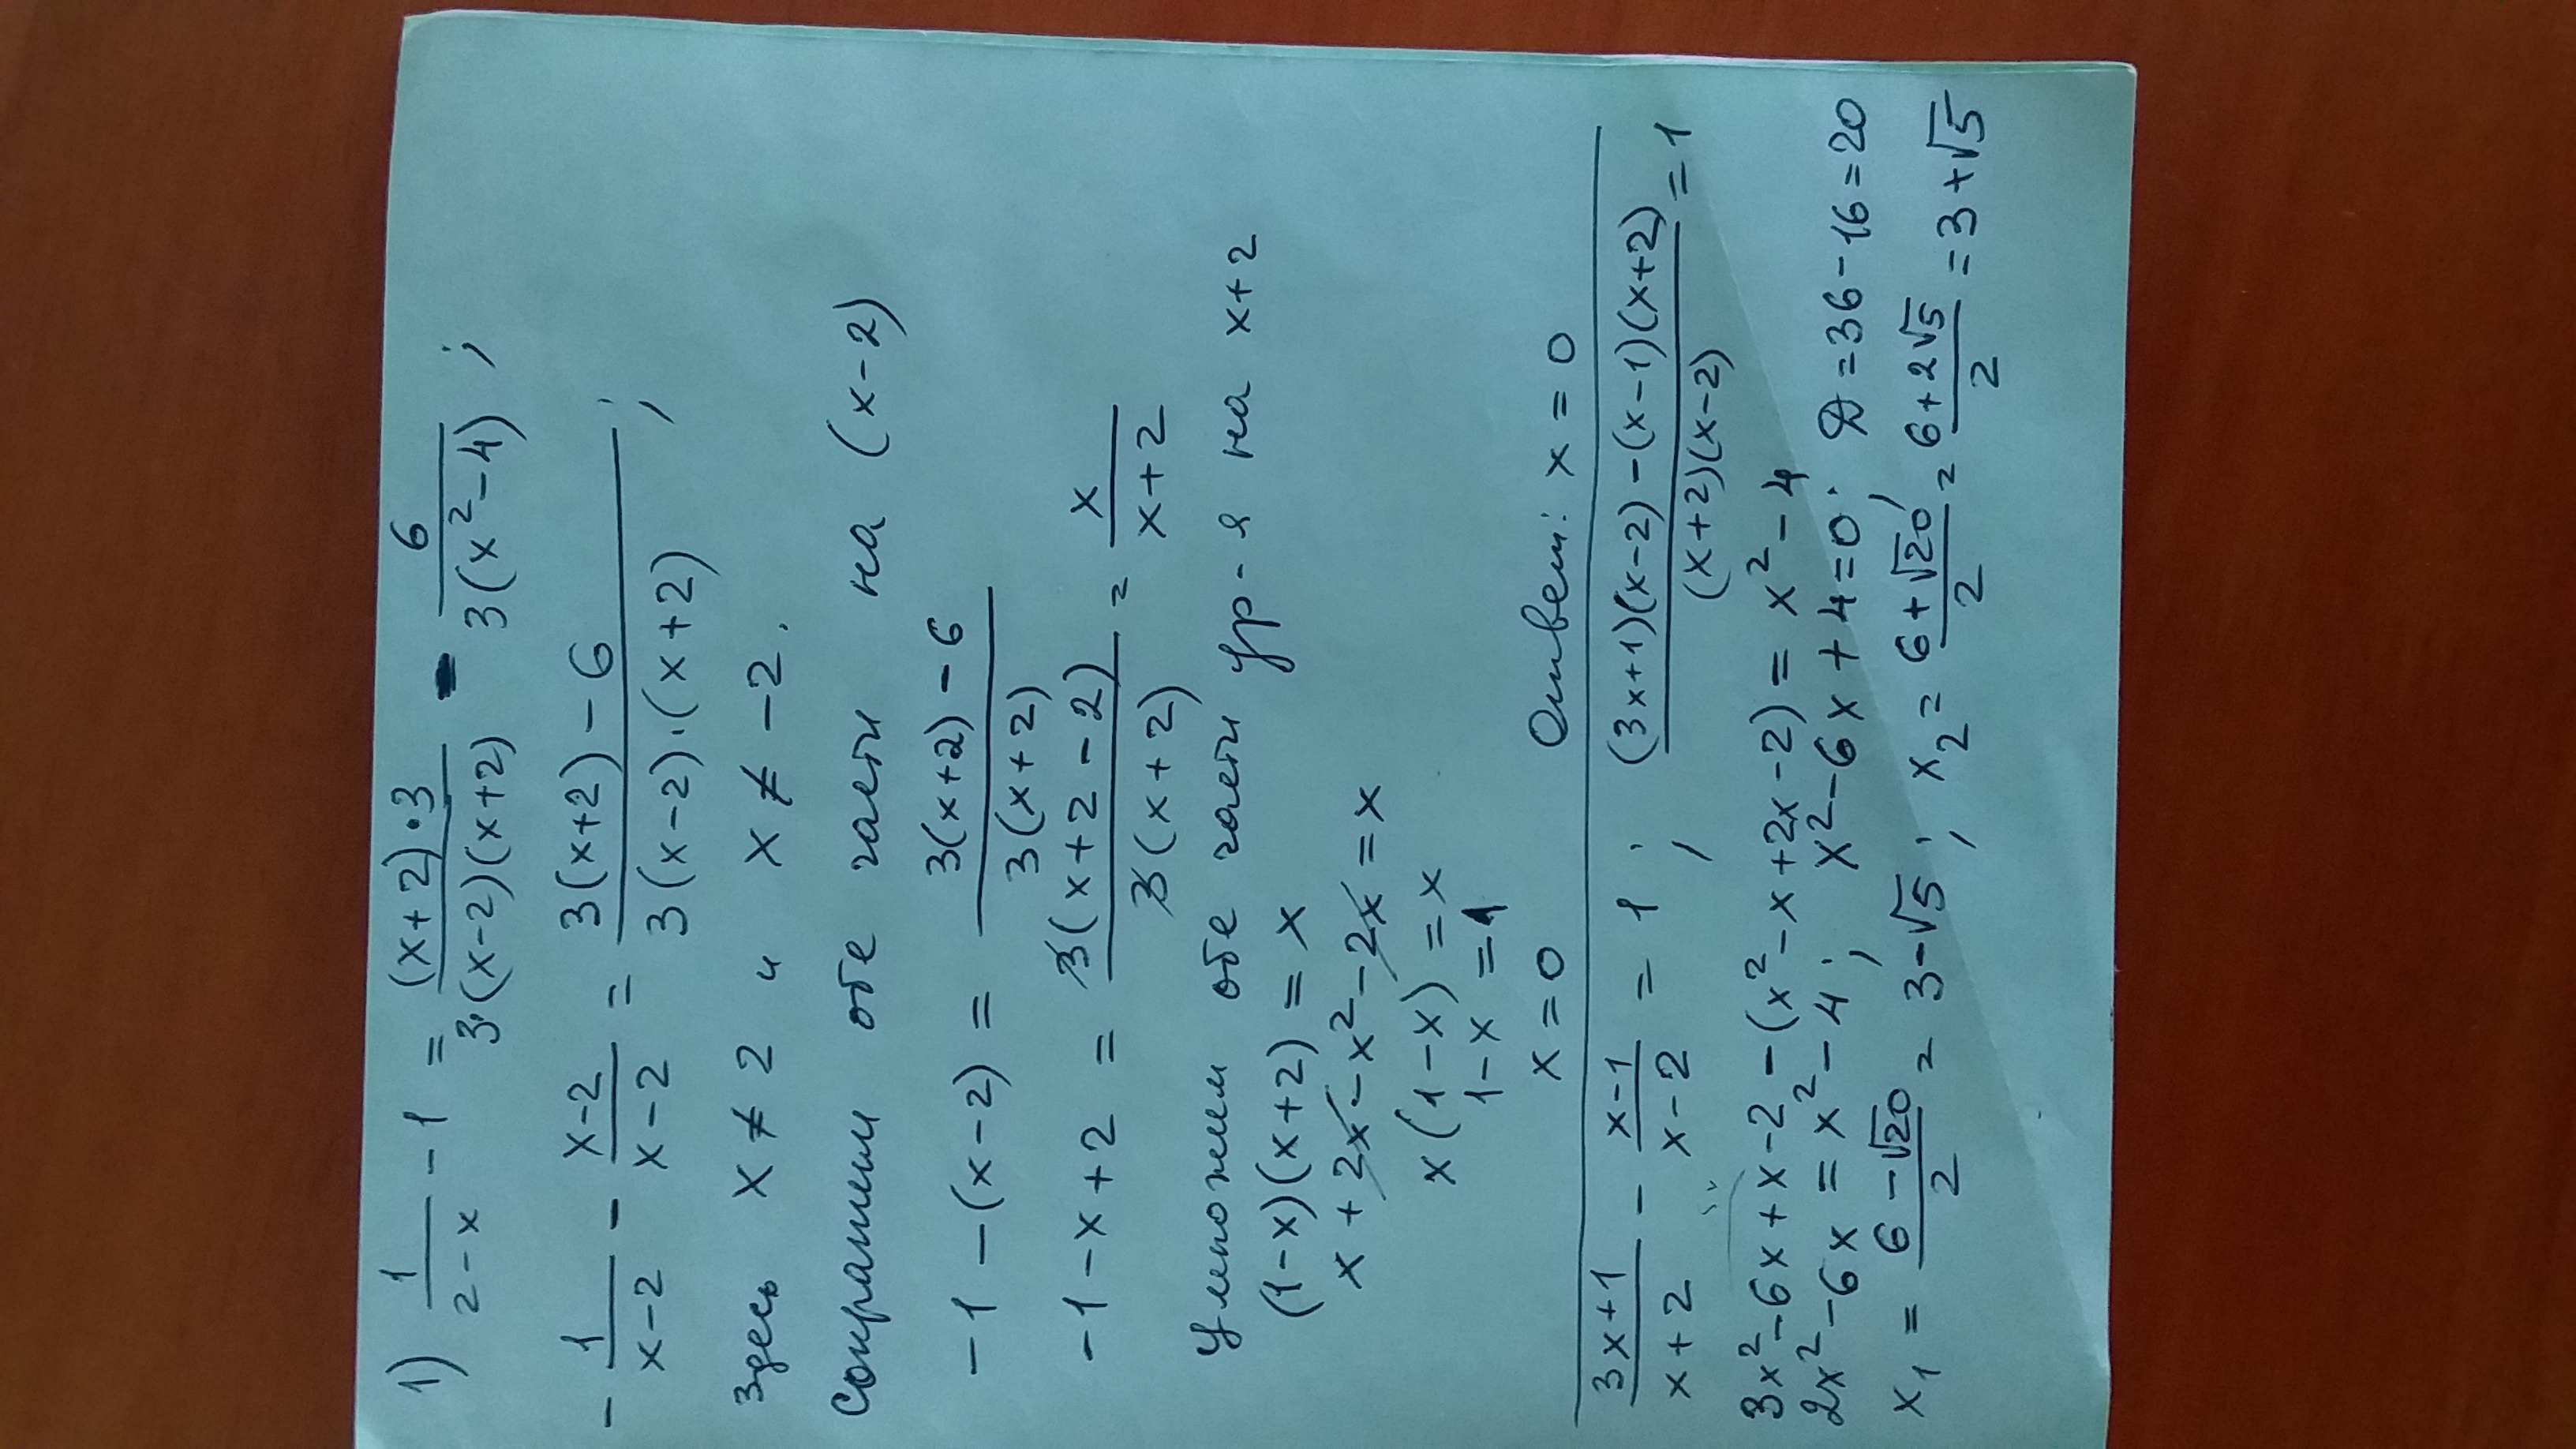 1) 1/(2-x) - 1 = (x+2)·3/(3·(x-2)(x+2)) - 6/(3(x²-4));
-1/(x-2) - (x-2)/(x-2) = (3(x+2)-6)/(3(x-2)·(x+2));
Здесь x ≠ 2 и x ≠ -2.
Сократим обе части на (x-2)
-1 - (x-2) = (3(x+2)-6)/(3(x+2))
-1 - x + 2 = 3(x+2-2)/(3(x+2)) = x/(x+2)
Умножим обе части ур-я на x+2
(1-x)(x+2) = x
x + 2x - x² - 2x = x
x(1-x) = x
1-x = 1
x = 0 Ответ: x = 0
(3x+1)/(x+2) - (x-1)/(x-2) = 1; ((3x+1)(x-2) - (x-1)(x+2))/((x+2)(x-2)) = 1
3x² - 6x + x - 2 - (x² - x + 2x - 2) = x² - 4
2x² - 6x = x² - 4; x² - 6x + 4 = 0; D = 36 - 16 = 20
x₁ = (6 - √20)/2 = 3 - √5; x₂ = (6 + √20)/2 = (6 + 2√5)/2 = 3 + √5